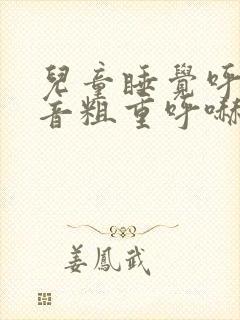 兒童睡覺呼
音粗重呼嚇
姜鳳武